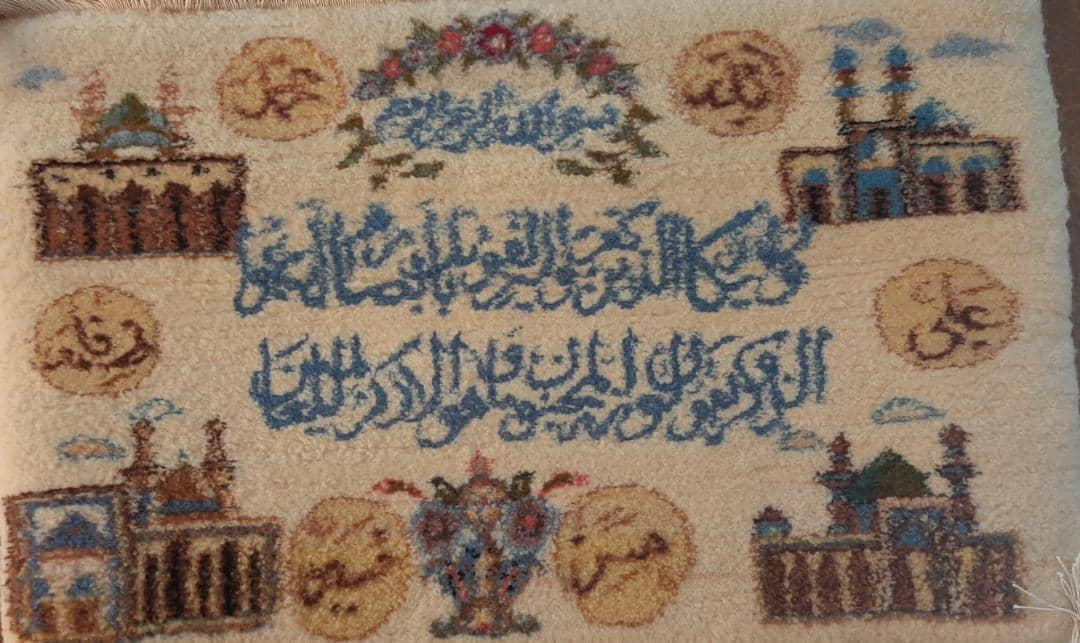 الله
بسم الله الرحمن الرحیم
محمد
وان یکاد الذین کفروا لیزلقونک بابصارهم لما سمعوا
علی
الذکر و یقولون انه لمجنون و ما هو الا ذکر للعالمین
فاطمه
حسن
حسین